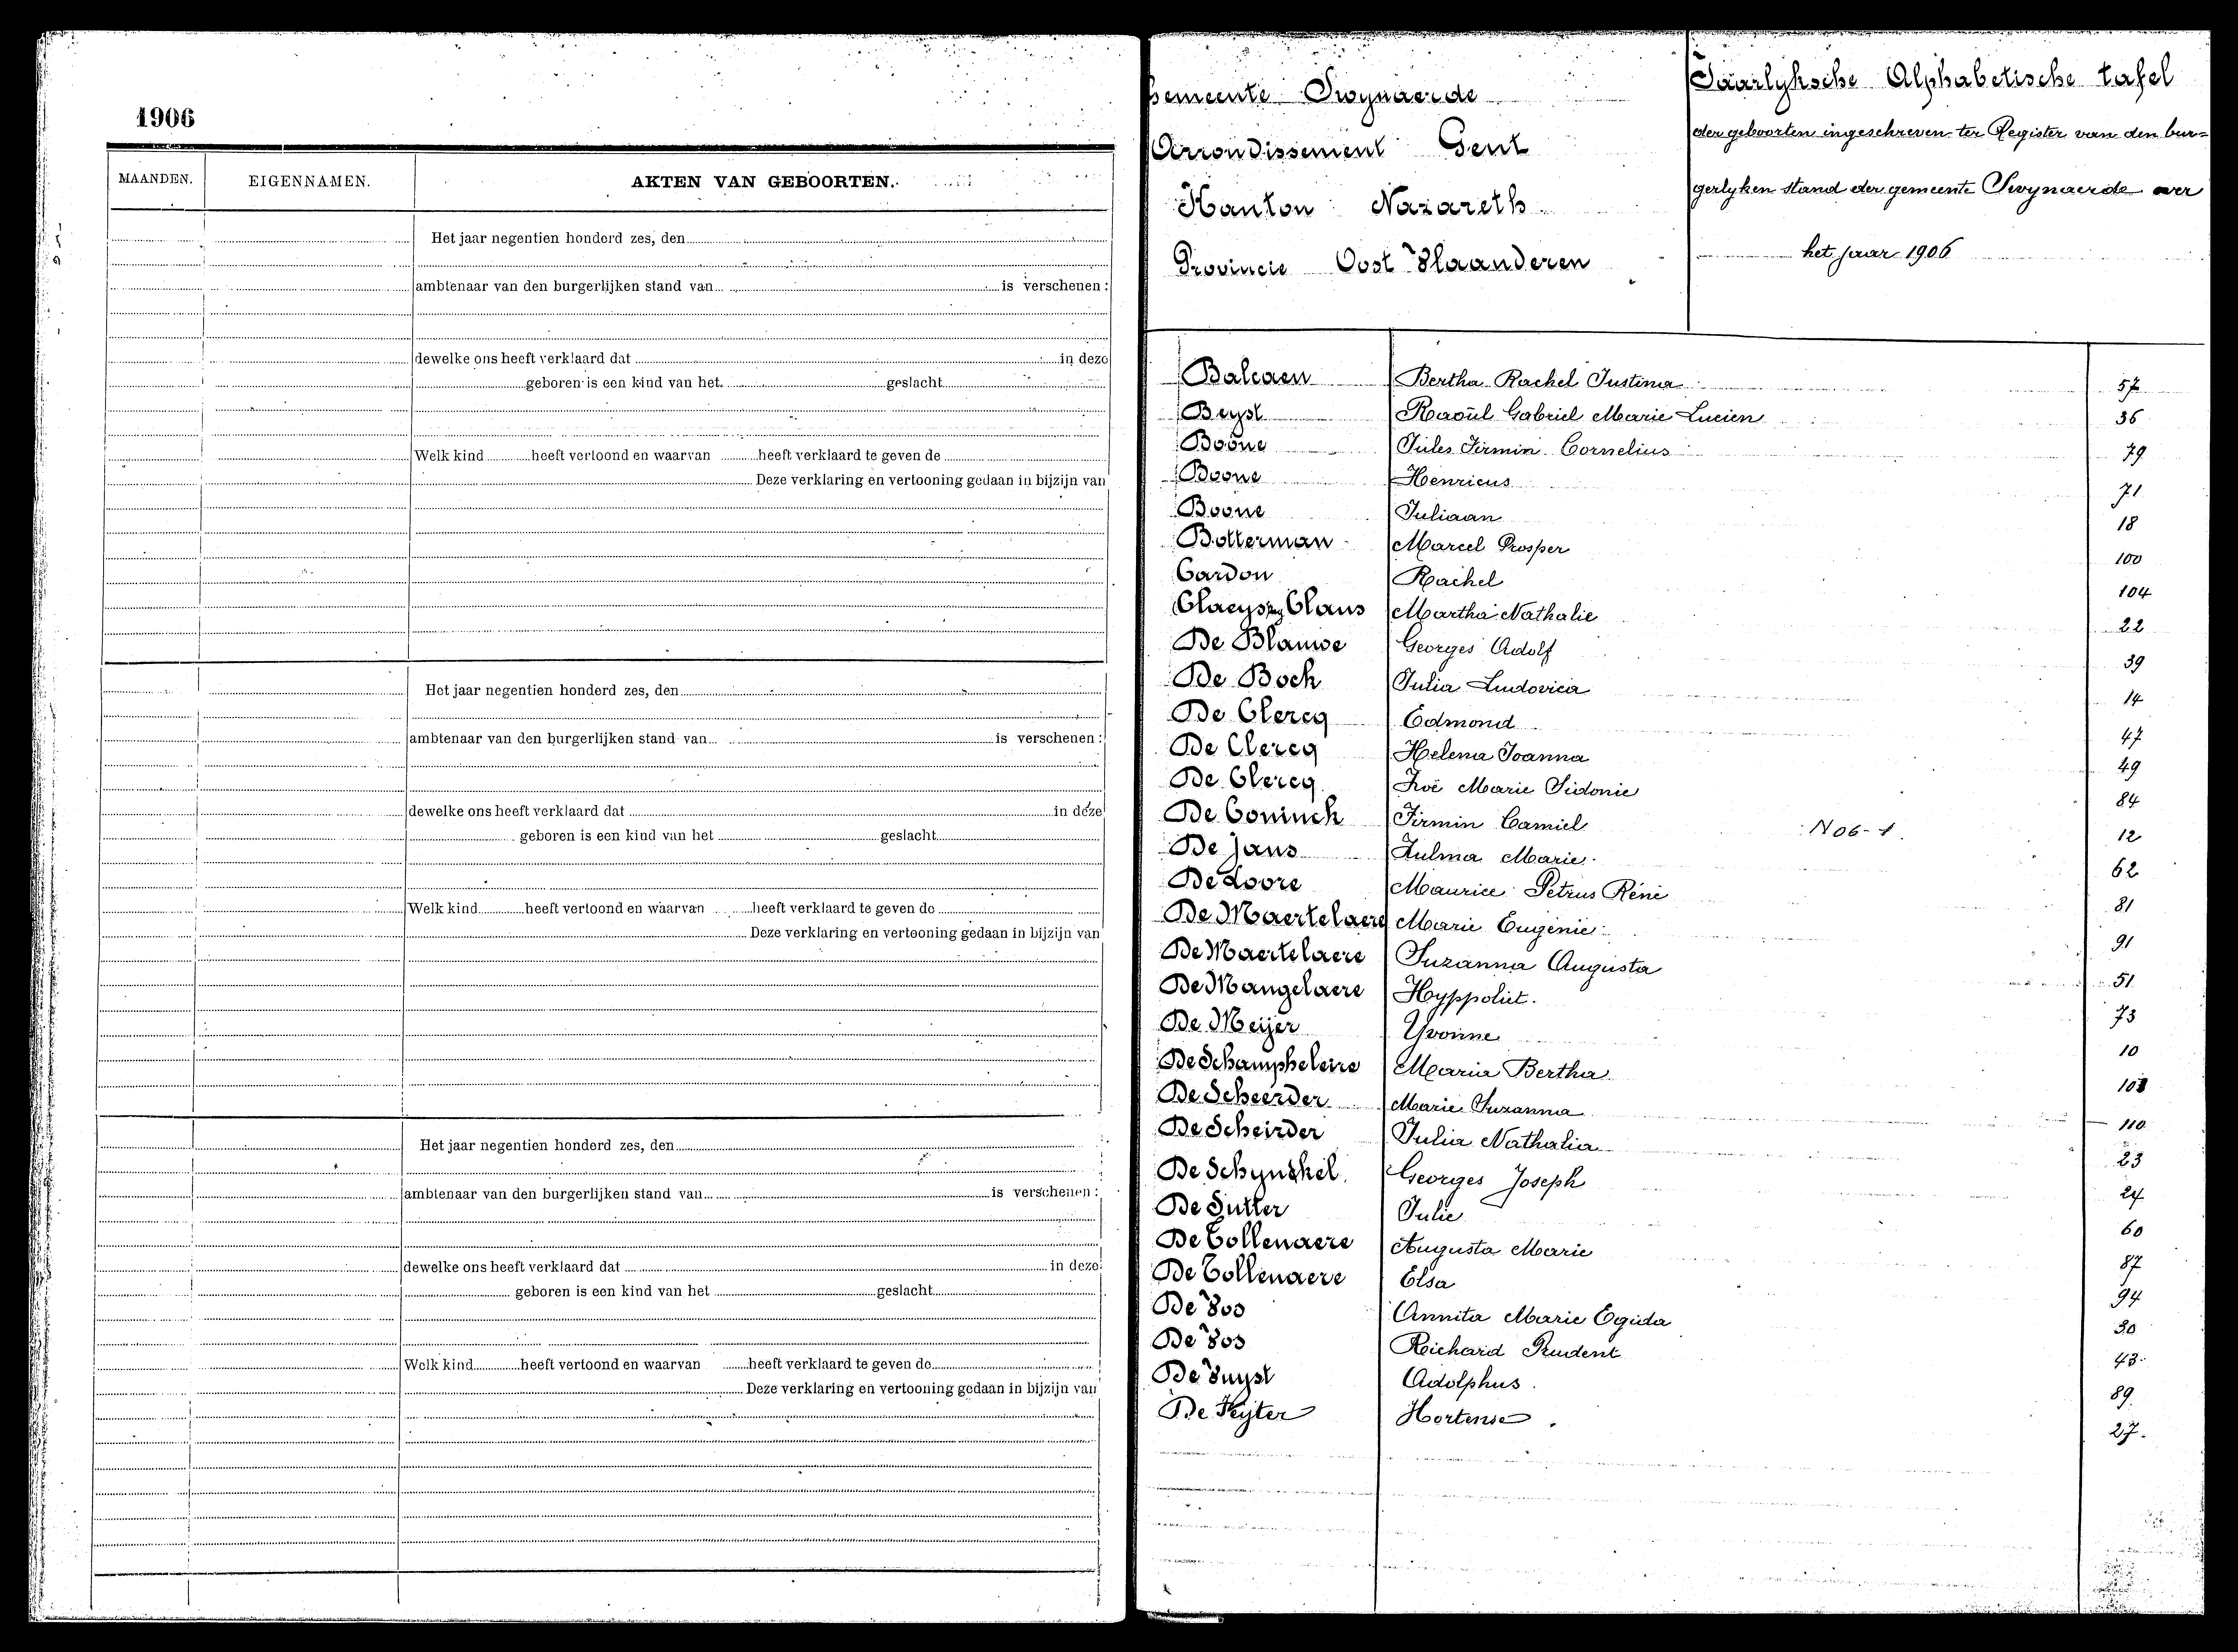 1906
MAANDEN. EIGENNAMEN. AKTEN VAN GEBOORTEN.
Het jaar negentien honderd zes, den
ambtenaar van den burgerlijken stand van is verschenen:
dewelke ons heeft verklaard dat in deze
geboren is een kind van het geslacht
Welk kind heeft vertoond en waarvan heeft verklaard te geven de
Deze verklaring en vertooning gedaan in bijzijn van
Het jaar negentien honderd zes, den
ambtenaar van den burgerlijken stand van is verschenen:
dewelke ons heeft verklaard dat in deze
geboren is een kind van het geslacht
Welk kind heeft vertoond en waarvan heeft verklaard te geven de
Deze verklaring en vertooning gedaan in bijzijn van
Het jaar negentien honderd zes, den
ambtenaar van den burgerlijken stand van is verschenen:
dewelke ons heeft verklaard dat in deze
geboren is een kind van het geslacht
Welk kind heeft vertoond en waarvan heeft verklaard te geven de
Deze verklaring en vertooning gedaan in bijzijn van
Gemeente Swynaerde
Arrondissement Gent
Kanton Nazareth
Provincie Oost Vlaanderen
Jaarlyksche Alphabetische tafel
der geboorten ingeschreven ter Register van den bur=
gerlyken stand der gemeente Swynaerde over
het jaar 1906
Balcaen Bertha Rachel Justina 57
Beyst Raoül Gabriel Marie Lucien 36
Boone Jules Firmin Cornelius 79
Boone Henricus 71
Boone Juliaan 18
Botterman Marcel Prosper 100
Cardon Rachel 104
Claeys Claus Martha Nathalie 22
De Blauwe Georges Adolf 39
De Bock Julia Ludovica 14
De Clercq Edmond 47
De Clercq Helena Joanna 49
De Clercq Zoë Marie Sidonie 84
De Coninck Firmin Camiel N 06-1. 12
De Jans Zulma Marie 62
De Loore Maurice Petrus Réné 81
De Maertelaere Marie Eugénie 91
De Maertelaere Suzanna Augusta 51
De Mangelaere Hyppoliet. 73
De Meijer Yvonne 10
De Schampheleire Maria Bertha
De Scheerder Marie Suzanna 110
De Scheirder Julia Nathalia 23
De Schynkel Georges Joseph 24
De Sutter Julie 60
De Tollenaere Augusta Marie 87
De Tollenaere Elsa 94
De Vos Annita Marie Egida 30
De Vos Reichard Prudent 43
De Vuyst Adolphus 89
De Keyter Hortense 27.